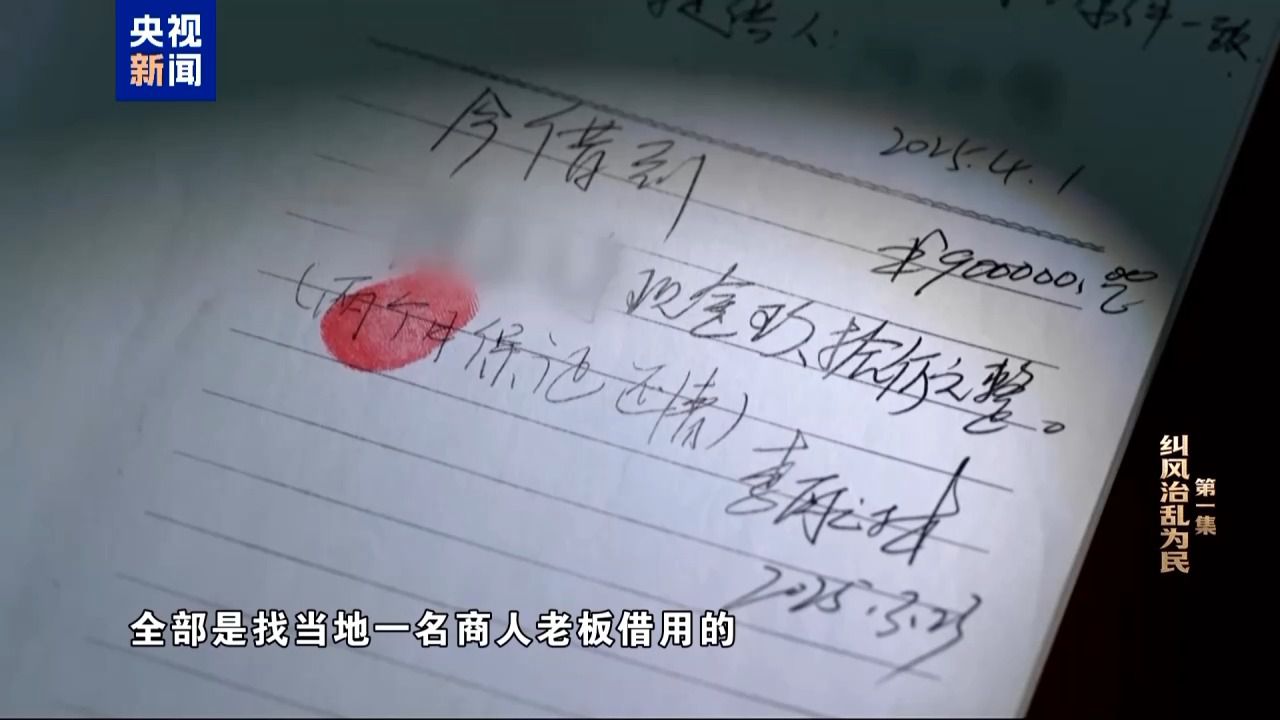 央视
新闻
提供人：
2025.4.1
今借到
¥900000.00
现金玖拾万元整。
（两个月保证还清）
2025.3.23
纠风治乱为民
第一集
全部是找当地一名商人老板借用的